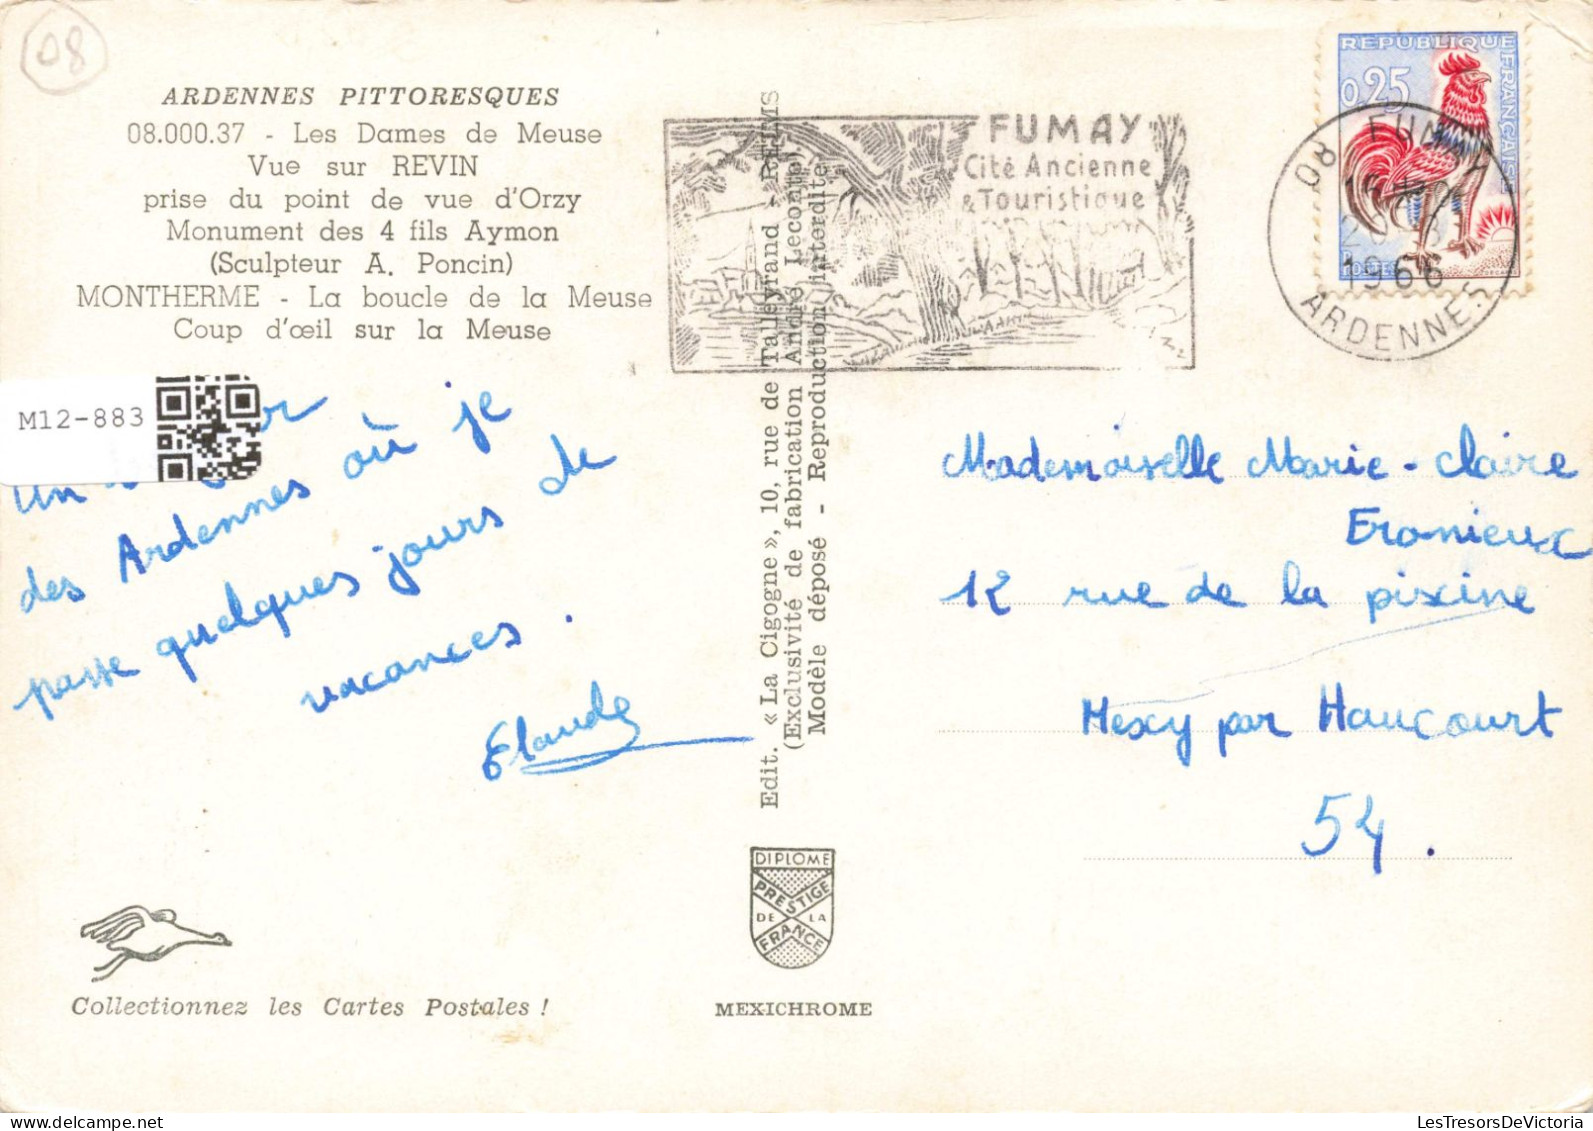 08
ARDENNES PITTORESQUES
08.000.37 - Les Dames de Meuse
Vue sur REVIN
prise du point de vue d'Orzy
Monument des 4 fils Aymon
(Sculpteur A. Poncin)
MONTHERME - La boucle de la Meuse
Coup d'œil sur la Meuse
M12-883
un
des Ardennes où je
passe quelques jours de
vacances.
Claude
Collectionnez les Cartes Postales !
Edit. « La Cigogne », 10, rue de Talleyrand - REIMS
(Exclusivité de fabrication André Leconte)
Modèle déposé - Reproduction interdite
DIPLOME
PRESTIGE
DE LA
FRANCE
MEXICHROME
FUMAY
Cité Ancienne
& Touristique
REPUBLIQUE FRANÇAISE
0,25
POSTES
08 FUMAY
1966
ARDENNES
Mademoiselle Marie-Claire
12 rue de la piscine
Mexy par Haucourt
54.
LesTresorsDeVictoria